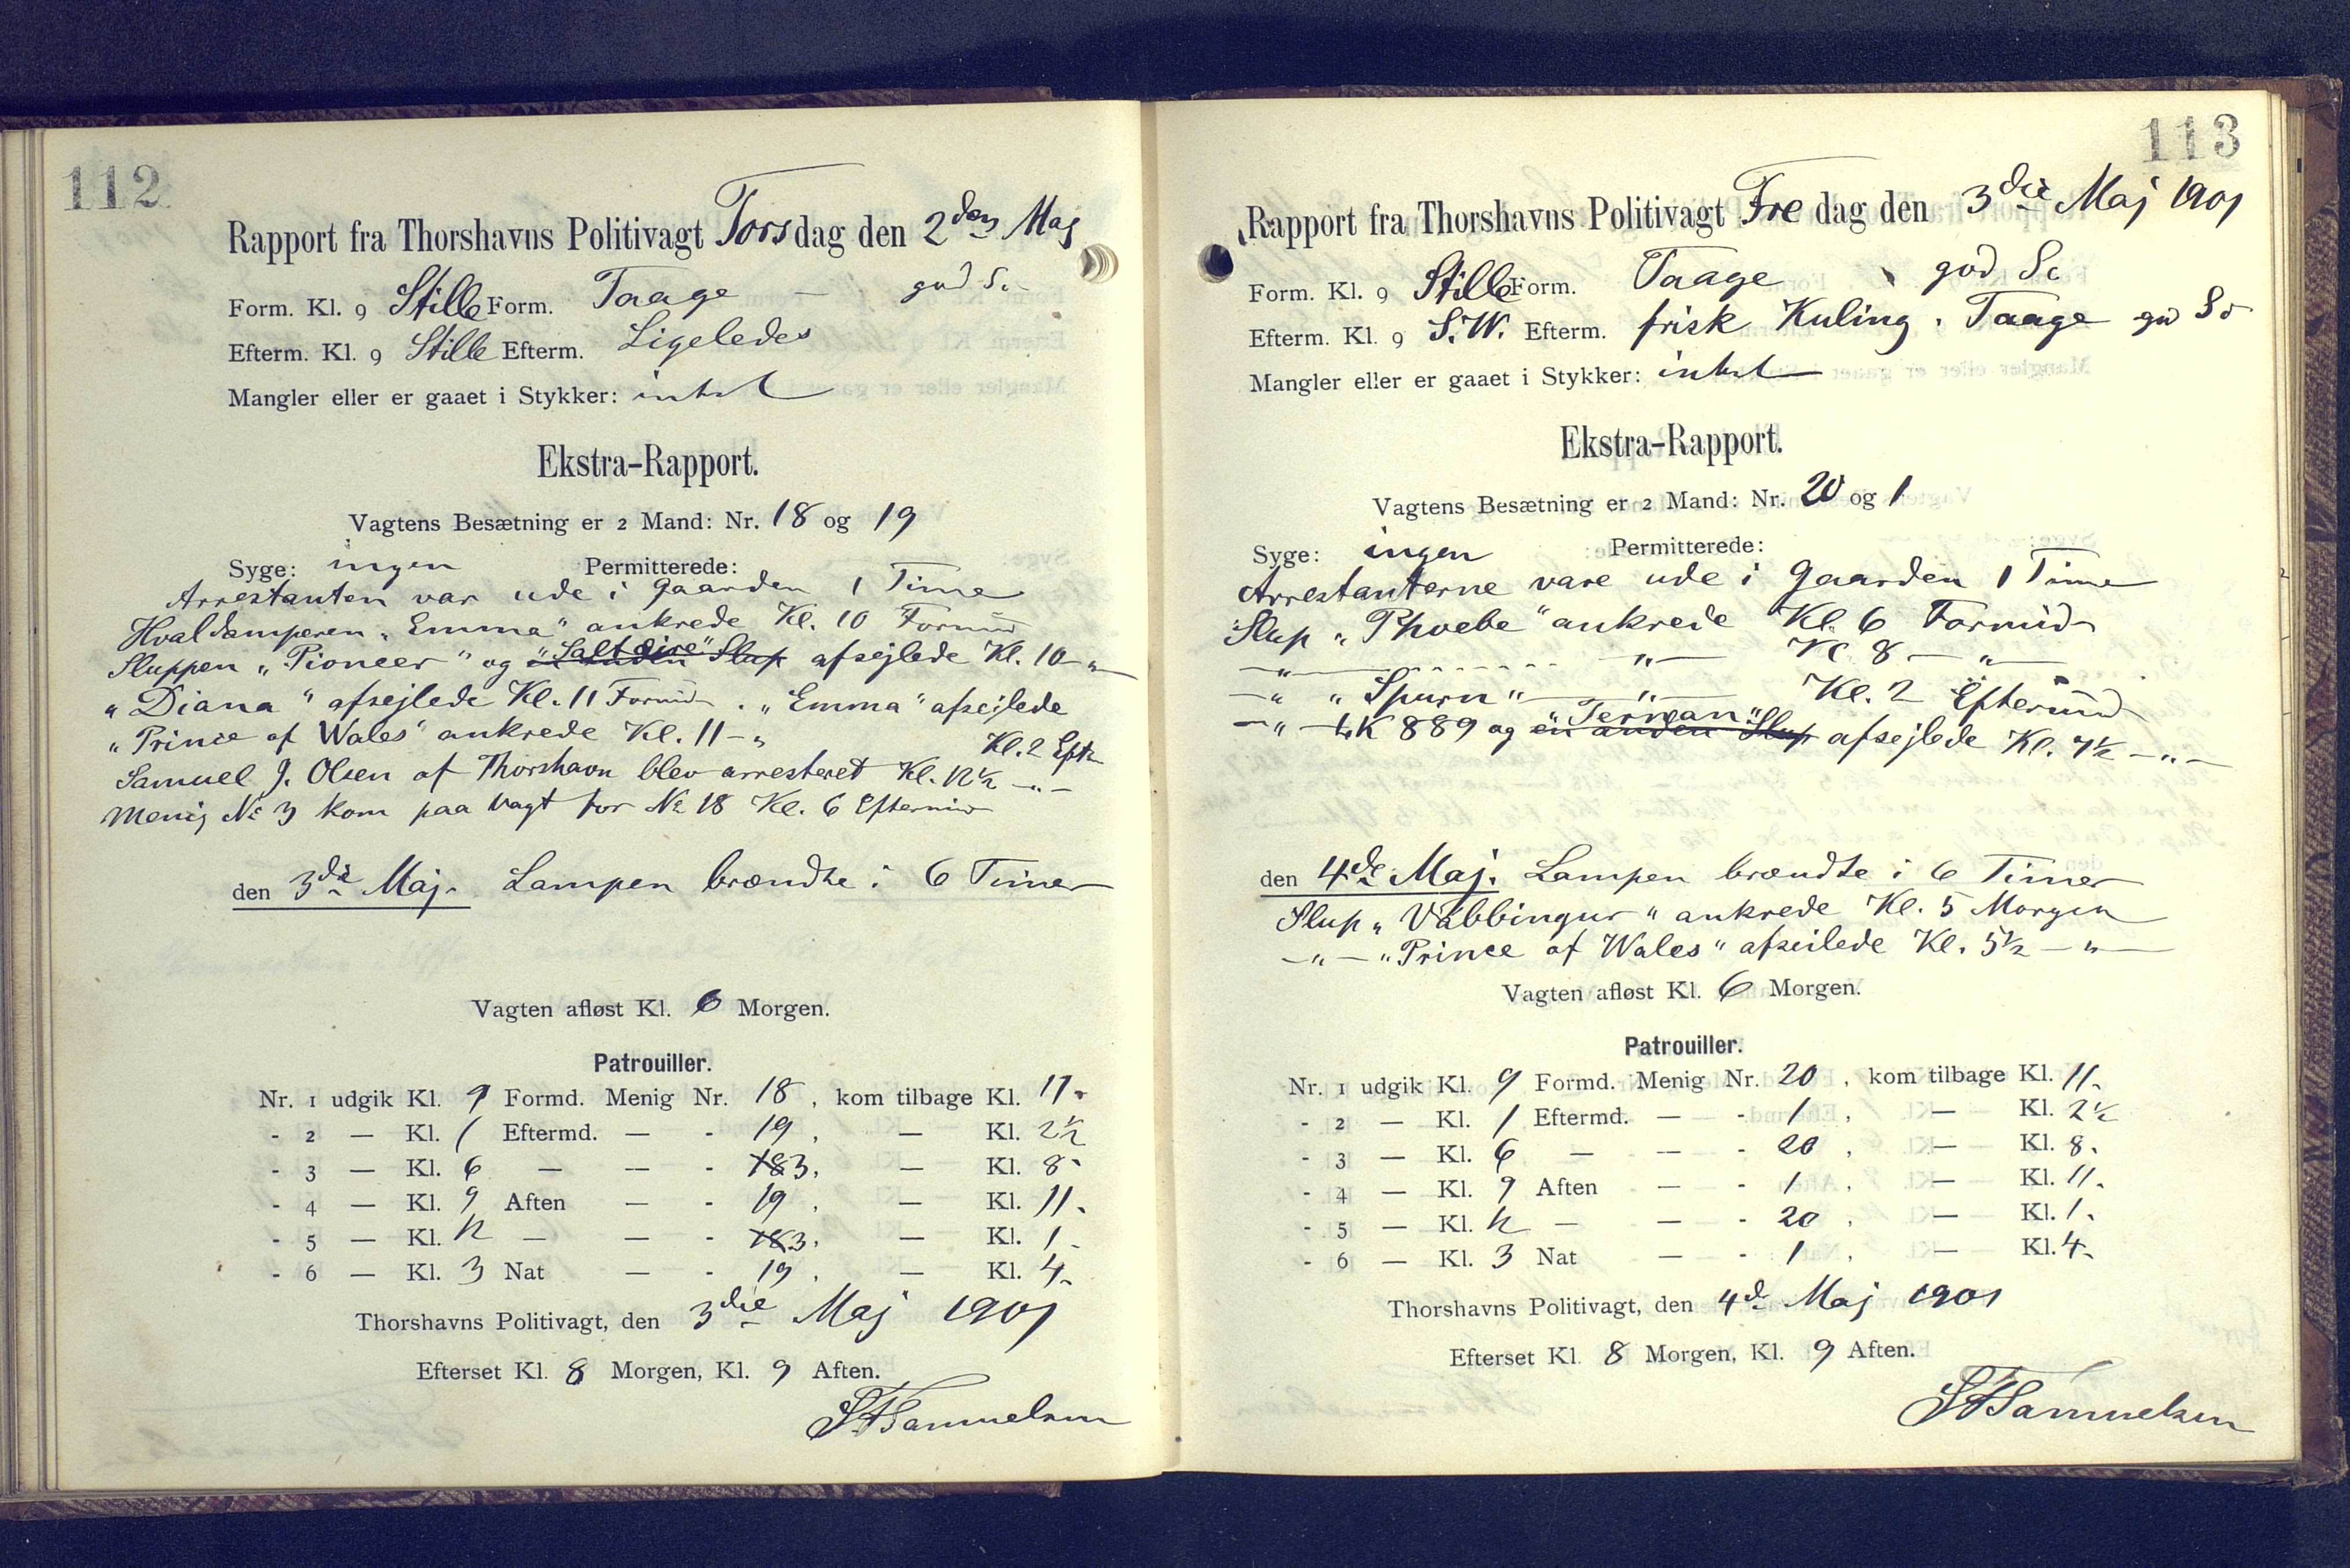 112
Rapport fra Thorshavns Politivagt Torsdag den 2den Maj
Form. Kl. 9 Stille Form. Taage - god S.
Efterm. Kl. 9 Stille Efterm. Ligeledes
Mangler eller er gaaet i Stykker: intet
Ekstra-Rapport.
Vagtens Besætning er 2 Mand: Nr. 18 og 19
Syge: ingen Permitterede:
Arrestanten var ude i Gaarden 1 Time
Hvaldamperen "Emma" ankrede Kl. 10 Formd
Sluppen "Pioneer" og "Saltaire" en anden Slup afsejlede Kl. 10 - "
"Diana" afsejlede Kl. 11 Formd. "Emma" afsejlede
"Prince of Wales" ankrede Kl. 11 - " Kl. 2 Eftr
Samuel J. Olsen af Thorshavn blev arresteret Kl. 12½ - " -
Menig No 3 kom paa Vagt for No 18 Kl. 6 Eftermid
den 3die Maj. Lampen brændte i 6 Timer
Vagten afløst Kl. 6 Morgen.
Patrouiller.
Nr. 1 udgik Kl. 9 Formd. Menig Nr. 18, kom tilbage Kl. 11.
- 2 — Kl. 1 Eftermd. — - 19, — Kl. 2½
- 3 — Kl. 6 — — - 18 3, — Kl. 8.
- 4 — Kl. 9 Aften — - 19, — Kl. 11.
- 5 — Kl. 12 — — - 18 3, — Kl. 1.
- 6 — Kl. 3 Nat — - 19, — Kl. 4.
Thorshavns Politivagt, den 3die Maj 1901
Efterset Kl. 8 Morgen, Kl. 9 Aften.
SFSamuelsen
113
Rapport fra Thorshavns Politivagt Fredag den 3die Maj 1901
Form. Kl. 9 Stille Form. Taage god Sø
Efterm. Kl. 9 S.W. Efterm. frisk Kuling. Taage gd Sø
Mangler eller er gaaet i Stykker: intet
Ekstra-Rapport.
Vagtens Besætning er 2 Mand: Nr. 20 og 1
Syge: ingen Permitterede:
Arrestanterne vare ude i Gaarden 1 Time
Slup "Phoebe" ankrede Kl. 6 Formid
- " - - - - - - - " - Kl 8 - " -
- " "Spurn" - " - Kl. 2 Eftermid
- " - LK 889 og "Ternan" en anden Slup afsejlede Kl. 7½ - " -
den 4de Maj. Lampen brændte i 6 Timer
Slup "Vabbingur" ankrede Kl. 5 Morgen
- " - "Prince of Wales" afseilede Kl. 5½ - " -
Vagten afløst Kl. 6 Morgen.
Patrouiller.
Nr. 1 udgik Kl. 9 Formd. Menig Nr. 20, kom tilbage Kl. 11.
- 2 — Kl. 1 Eftermd. — - 1, — Kl. 2½
- 3 — Kl. 6 — — - 20, — Kl. 8.
- 4 — Kl. 9 Aften — - 1, — Kl. 11.
- 5 — Kl. 12 — — - 20, — Kl. 1.
- 6 — Kl. 3 Nat — - 1, — Kl. 4.
Thorshavns Politivagt, den 4de Maj 1901
Efterset Kl. 8 Morgen, Kl. 9 Aften.
SFSamuelsen